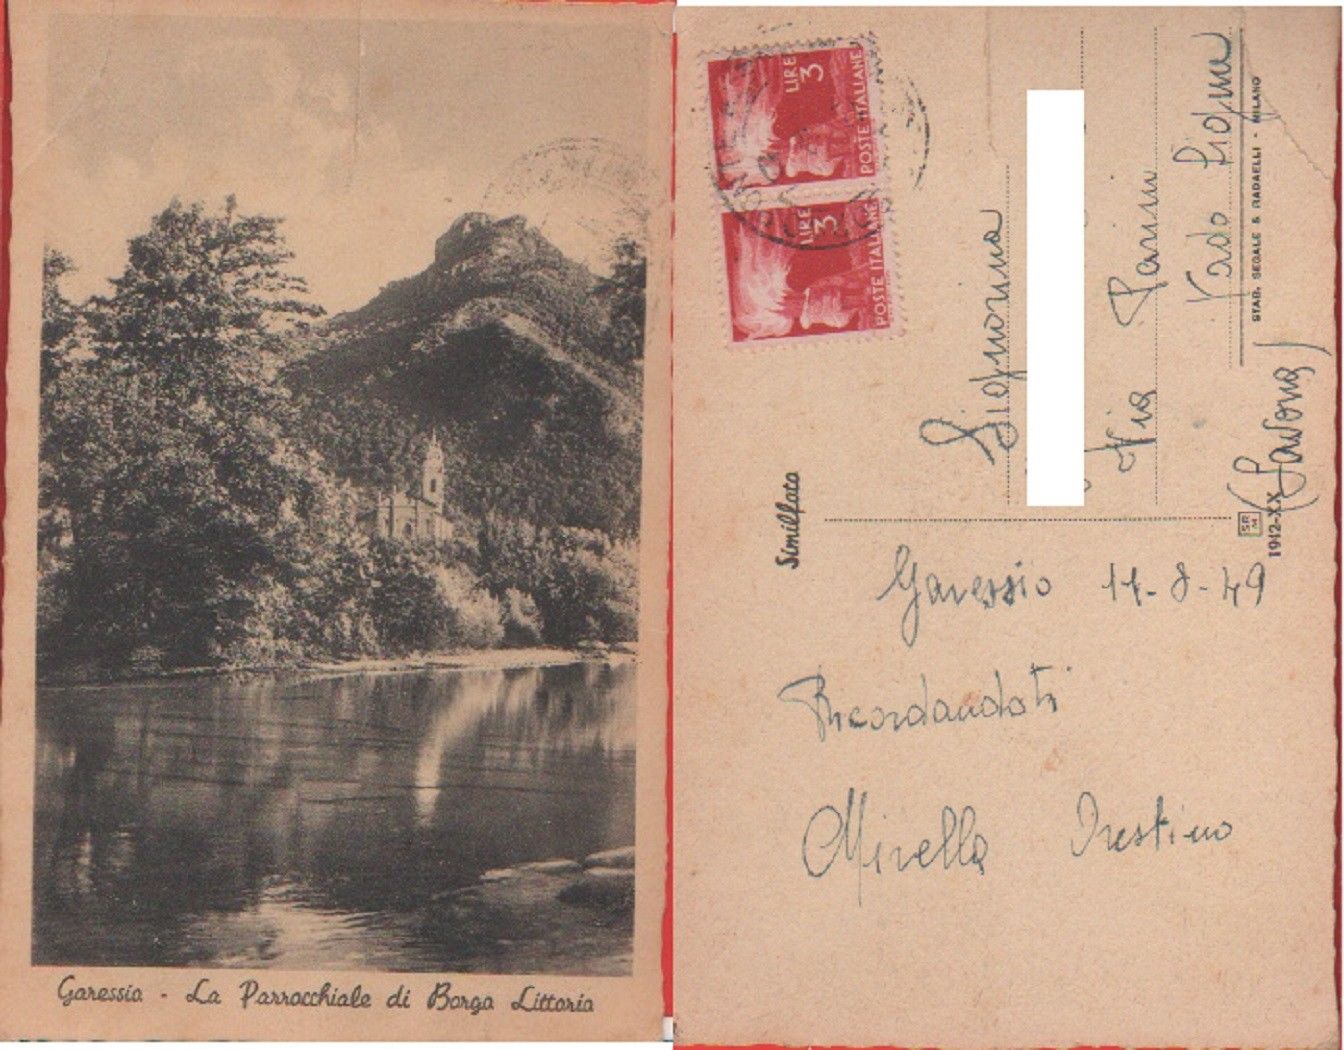 Garessio - La Parrocchiale di Borgo Littorio
LIRE 3
POSTE ITALIANE
LIRE 3
POSTE ITALIANE
Signorina
Via Parini
Vado Ligure
(Savona)
STAB. SEGALE & RADAELLI - MILANO
SR
M
1942-XX
Similfoto
Garessio 11-8-49
Ricordandoti
Mirella